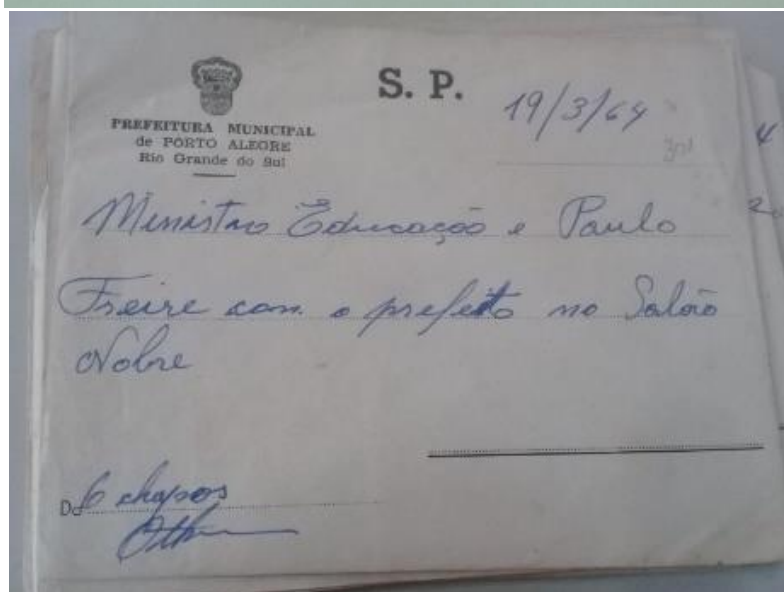 S. P.
19/3/64
PREFEITURA MUNICIPAL
de PORTO ALEGRE
Rio Grande do Sul
Ministro Educação e Paulo
Freire com o prefeito no Salão
Nobre
6 chapas